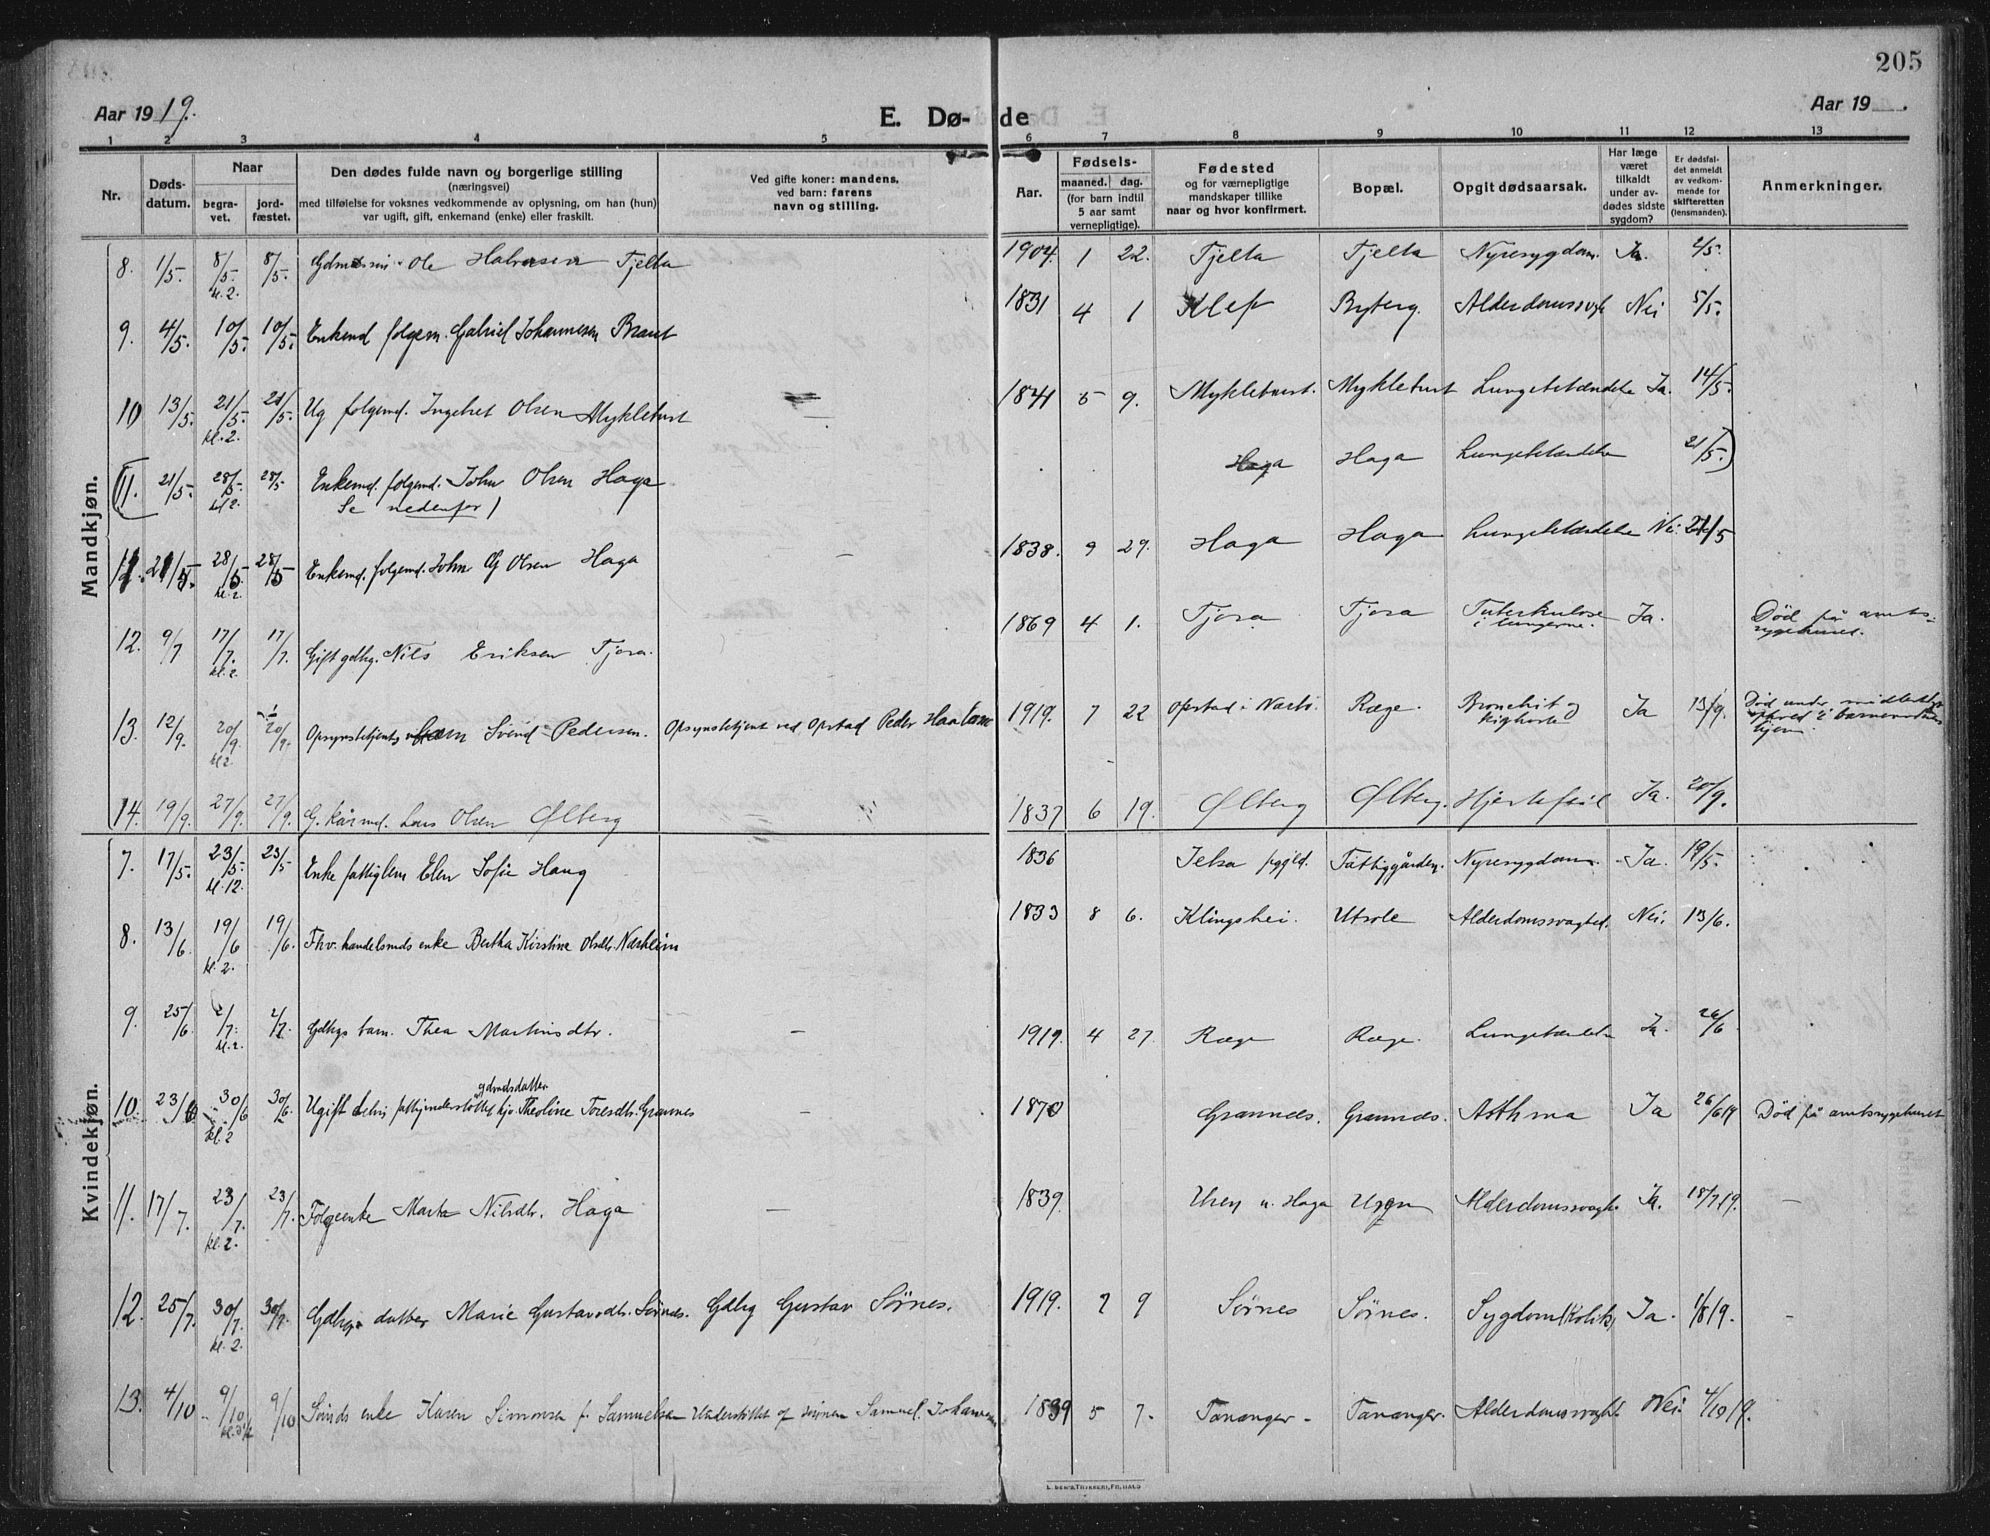 205
Aar 1919.
E. Dø-
de
Aar 19 .
1 2 3 4 5 6 7 8 9 10 11 12 13
Nr.
Døds-
datum.
Naar
begra-
vet.
jord-
fæstet.
Den dødes fulde navn og borgerlige stilling
(næringsvei)
med tilføielse for voksnes vedkommende av oplysning, om han (hun)
var ugift, gift, enkemand (enke) eller fraskilt.
Ved gifte koner: mandens,
ved barn: farens
navn og stilling.
Aar.
Fødsels-
maaned. dag.
(for barn indtil
5 aar samt
vernepligtige).
Fødested
og for værnepligtige
mandskaper tillike
naar og hvor konfirmert.
Bopæl.
Opgit dødsaarsak.
Har læge
været
tilkaldt
under av-
dødes sidste
sygdom?
Er dødsfal-
det anmeldt
av vedkom-
mende for
skifteretten
(lensmanden).
Anmerkninger.
Mandkjøn.
8. 1/5. 8/5. kl. 2. 8/5. Ole Halvorsen Tjelta 1904. 1 22. Tjelta Tjelta Nyresygdom. Ja. 2/5.
9. 4/5. 10/5. 10/5. Enkemd folgem. Gabriel Johannesen Braut 1831 4 1 Klep Byberg. Alderdomssvgh Nei 5/5.
10 13/5. 21/5. kl. 2. 21/5. Ug folgemd. Ingebret Olsen Myklebust — 1841 5 9. Myklebust. Myklebust Lungebetændelse Ja. 14/5.
(11. 21/5. 28/5. kl 2. 28/5 Enkemd. folgemd. John Olsen Haga Haga Haga Lungebetændelse 21/5.)
Se nedenfor)
11. 21/5. 28/5. kl. 2. 28/5 Enkemd. folgemd. John Olsen Haga 1838. 9 29. Haga Haga Lungebetændelse Nei. 21/5
12. 9/7 17/7. kl. 2. 17/7. Gift gdbg. Nils Eriksen Tjora. 1869 4 1. Tjora Tjora Tuberkulose i lungerne. Ja. Død på amts-
sygehuset.
13. 12/9. 20/9. kl 2. 20/9. Opsynsbetjents Svend Pedersen. Opsynsbetjent ved Opstad Peder Haaland 1919. 7 22 Opstad i Nærbø. Ræge. Bronchit og kighoste Ja 13/9. Død under midlertidig
ophold i barnets
hjem
14. 19/9. 27/9. 27/9. G. kårmd. Lars Olsen Ølberg 1837 6 19. Ølberg Ølberg. Hjertefeil Ja. 20/9.
Kvindekjøn.
7. 17/5. 23/5. kl. 12. 23/5 Enke fattiglem Elen Sofie Haug 1836 Jelsa pgjld. Fattiggården. Nyresygdom. Ja. 19/5.
8. 13/6 19/6 kl. 2. 19/6. Fhv. handelsmds enke Bertha Kirstine Olsdtr. Nærheim 1833 8 6. Klingshei. Utsole Alderdomssvaghed. Nei. 13/6.
9. 25/6 2/7. kl. 2. 2/7. Gdbgs barn. Thea Martinsdtr. — 1919. 4 27. Ræge Ræge. Lungebetændelse Ja. 26/6
10. 23/6 30/6 kl. 2 30/6. Ugift selv. fattigunderstøttet gdmdsdatter Theoline Toresdtr. Grannes — 1870 Grannes. Grannes. Asthma Ja 26/6 19 Død på amtssygehuset
11. 17/7. 23/7. kl. 2. 23/7. Folgeenke Marta Nilsdtr. Haga — 1839. Uren u. Haga Uren Alderdomssvagh. Ja. 18/7 19. —
12. 25/7. 30/7. kl. 2. 30/7. Gdbgs datter Marie Gustavsdtr. Sørnes. Gdbg Gustav Sørnes. 1919. 7 9 Sørnes Sørnes. Sygdom (Kolik) Ja. 1/8 19. —
13. 4/10 9/10 9/10 Sømds enke Karen Simonsen f. Samuelsen Understøttet af sønnen Samuel Johan 1839 5 7. Tananger — Tananger. Alderdomssvagh. Nei. 4/10 19.